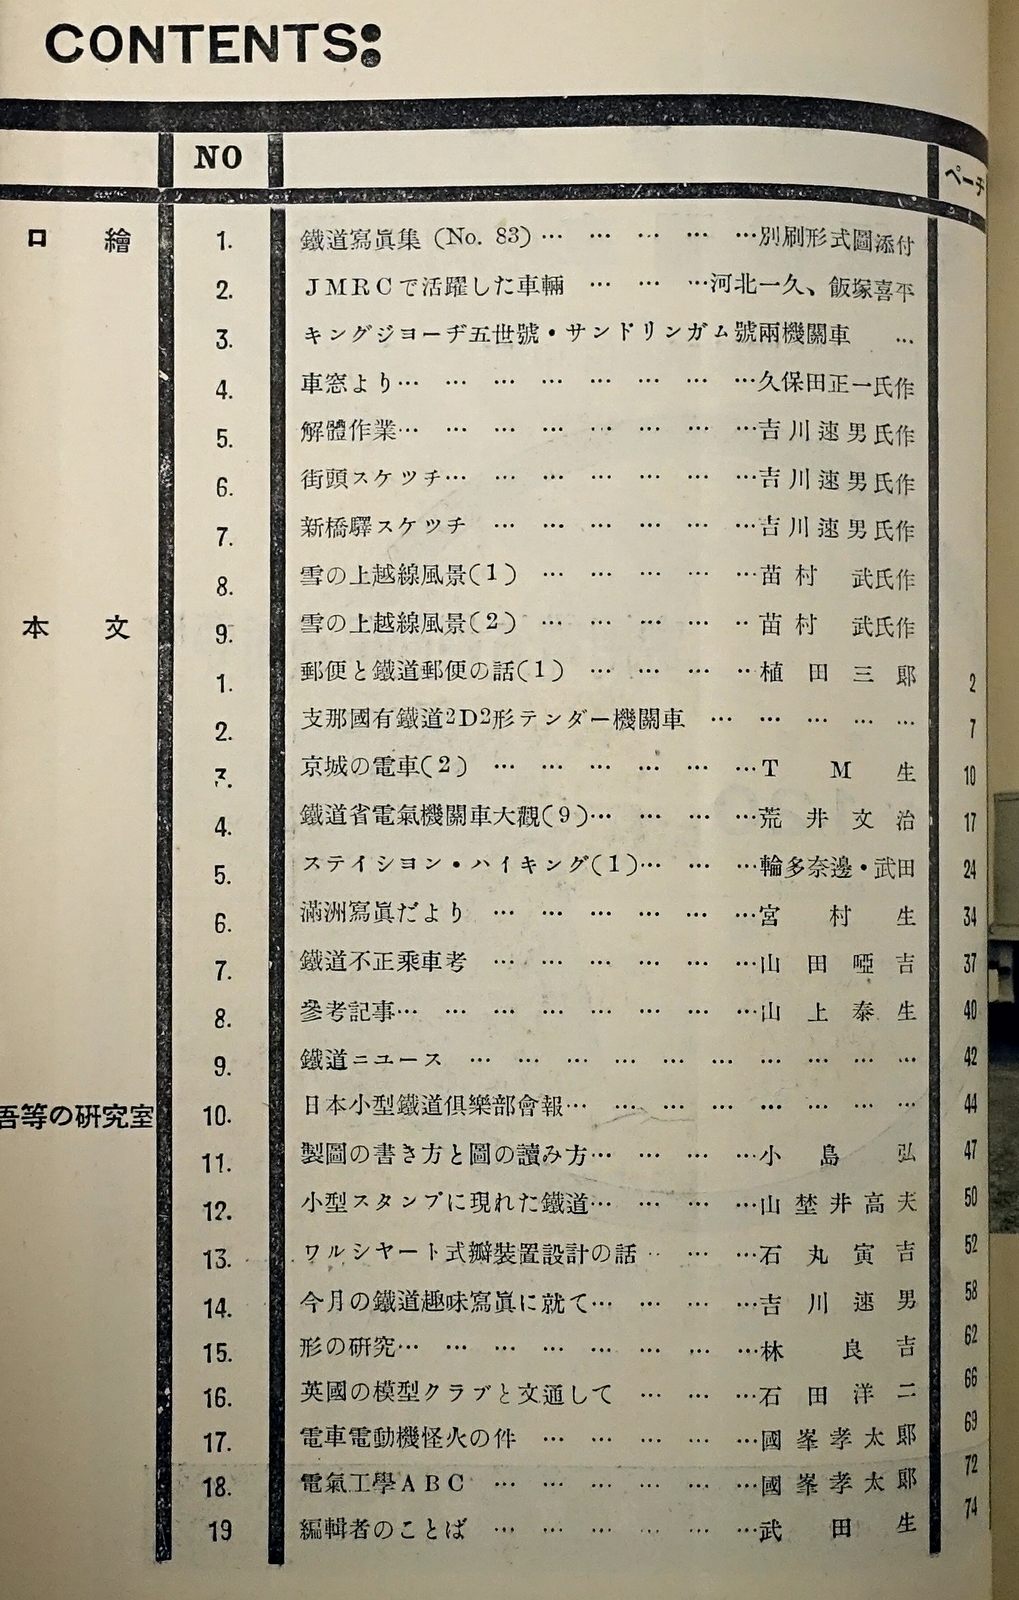 CONTENTS:
NO ページ
口繪 1. 鐵道寫眞集 (No. 83)… … … … …別刷形式圖添付
2. JMRCで活躍した車輛 … … …河北一久、飯塚喜平
3. キングジヨーヂ五世號・サンドリンガム號兩機關車 …
4. 車窓より… … … … … … … …久保田正一氏作
5. 解體作業… … … … … … … …吉川速男氏作
6. 街頭スケツチ… … … … … … …吉川速男氏作
7. 新橋驛スケツチ … … … … … …吉川速男氏作
8. 雪の上越線風景(1) … … … … …苗村 武氏作
本文 9. 雪の上越線風景(2) … … … … …苗村 武氏作
1. 郵便と鐵道郵便の話(1) … … … …植田三郎 2
2. 支那國有鐵道2D2形テンダー機關車 … … … … … 7
3. 京城の電車(2) … … … … … …T M 生 10
4. 鐵道省電氣機關車大觀(9)… … … …荒井文治 17
5. ステイシヨン・ハイキング(1)… … …輪多奈邊・武田 24
6. 滿洲寫眞だより … … … … … …宮村生 34
7. 鐵道不正乘車考 … … … … … …山田啞吉 37
8. 參考記事… … … … … … … …山上泰生 40
9. 鐵道ニユース … … … … … … … … … … 42
10. 日本小型鐵道俱樂部會報… … … … … … … … 44
吾等の研究室 11. 製圖の書き方と圖の讀み方… … … …小島弘 47
12. 小型スタンプに現れた鐵道… … … …山埜井高夫 50
13. ワルシヤート式瓣裝置設計の話 … … …石丸寅吉 52
14. 今月の鐵道趣味寫眞に就て… … … …吉川速男 58
15. 形の研究… … … … … … … …林良吉 62
16. 英國の模型クラブと文通して … … …石田洋二 66
17. 電車電動機怪火の件 … … … … …國峯孝太郎 69
18. 電氣工學ABC … … … … … …國峯孝太郎 72
19 編輯者のことば … … … … … …武田生 74